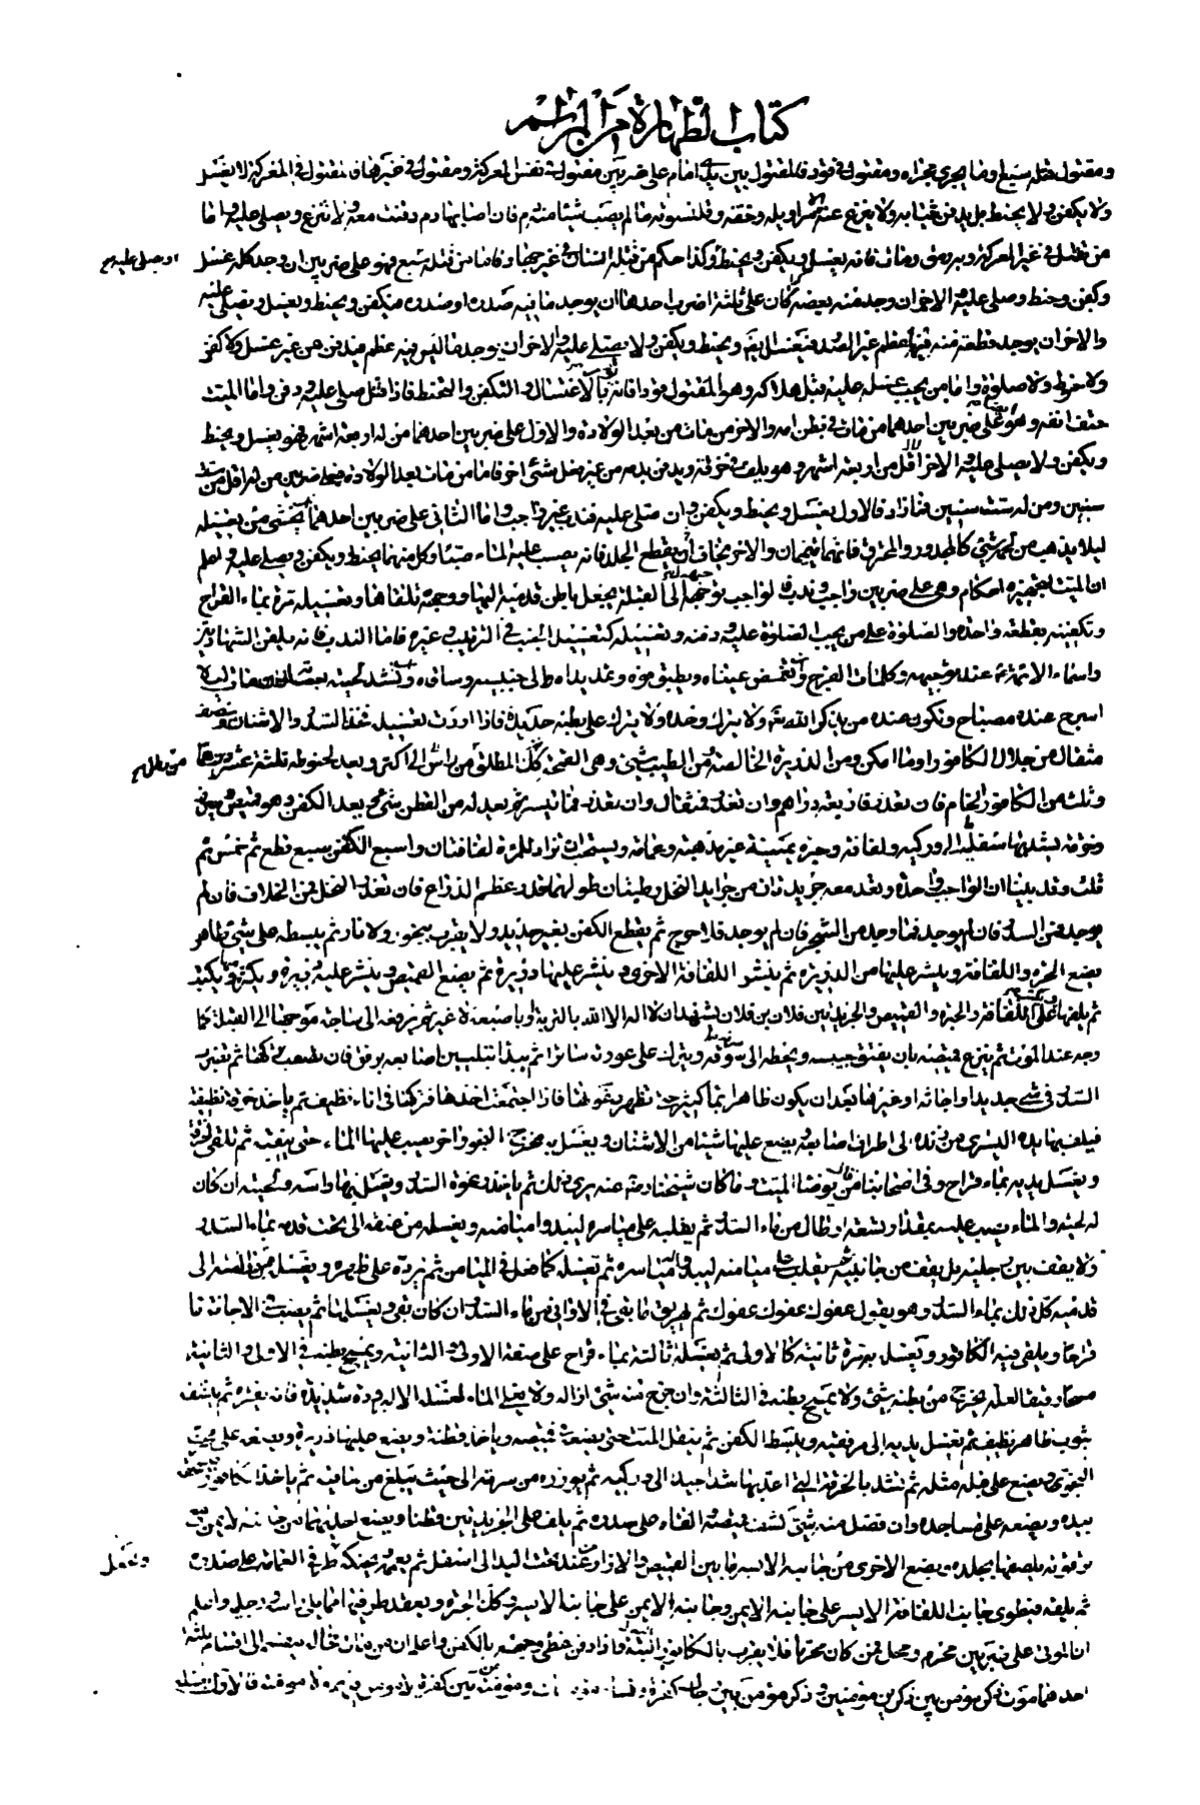 كتاب الطهارة من المراسم
ومقتول قتله سبع وما يجري مجراه ومقتول في قود فالمقتول بين يدي امام على ضربين مقتول في نفس المعركة ومقتول في غيرها فالمقتول في المعركة لا يغسل
ولا يكفن ولا يحنط بل يدفن بثيابه ولا ينزع عنه الا سراويله وخفه وقلنسوته ما لم يصب شيئا منها دم فان اصابها دم دفنت معه ولا تنزع ويصلى عليه واما
من قتل في غير المعركة وبه رمق ومات فانه يغسل ويكفن ويحنط وكذا حكم من قتله انسان في غير جهاد فاما من قتله سبع فهو على ضربين ان وجد كله غسل
او صلى عليه
وكفن وحنط وصلى عليه والاخر ان وجد منه بعضه كان على ثلثة اضرب احدها ان يوجد ما فيه صدره او صدره فيكفن ويحنط ويغسل ويصلى عليه
والاخر ان يوجد قطعة منه فيها عظم غير الصدر فيغسل ايضا ويحنط ويكفن ولا يصلى عليه والاخر ان يوجد ما ليس فيه عظم فيدفن من غير غسل ولا كفن
ولا حنوط ولا صلوة واما من يجب غسله عليه قبل هلاكه وهو المقتول قودا فانه يؤمر بالاغتسال والتكفن والتحنط فاذا قتل صلى عليه ودفن واما الميت
حتف انفه وهو على ضربين احدهما من مات في بطن امه والاخر من مات من بعد الولادة والاول على ضربين احدهما من له اربعة اشهر فهو يغسل ويحنط
ويكفن ولا يصلى عليه والاخر لاقل من اربعة اشهر وهو يلف في خرقة ويدفن بدمه من غير فعل شئ اخر فاما من مات بعد الولادة فعلى ضربين من له اقل من ست
سنين ومن له ست سنين فما زاد فالاول يغسل ويحنط ويكفن وان صلى عليه فندب غير واجب واما الثاني على ضربين احدهما يخشى من تغسيله
ليلا يذهب من لحمه شئ كالمجدور والمحترق فانهما يتيممان والاخر يخاف ان يقطع الجلد فانه يصب عليه الماء صبا وكل منهما يحنط ويكفن ويصلى عليه واعلم
ان للميت بتجهيزه احكام وهي على ضربين واجب وندب فالواجب توجيهه الى القبلة يجعل باطن قدميه اليها ووجهه تلقاها وتغسيله مرة بماء القراح
وتكفينه بقطعة واحدة والصلوة على من يجب الصلوة عليه ودفنه وتغسيله كتغسيل الجنب في الترتيب وغيره فاما الندب فانه يلقن الشهادتين
واسماء الائمة ع عند توجيهه وكلمات الفرج وتغمض عيناه ويطبق فوه وتمد يداه الى جنبيه وساقاه وتشد لحيته بعصابة فان مات ليلا
اسرج عنده مصباح ويكون عنده من يذكر الله تعالى ولا يترك وحده ولا يترك على بطنه حديدة فاذا اردت تغسيله فخذ السدر والاشنان ونصف
مثقال من جلال الكافور وما امكن ومن الذريرة الخالصة من الطيب شئ وهي القمحة كل المطلق من راس الى اكثر ويعد لحنوطه ثلثة عشر درهما
وثلث من الكافور الخام فان تعذر فاربعة دراهم وان تعذر فمثقال وان تعذر فما تيسر ثم يعد له من القطن شئ ثم يعد الكفن وهو قميص وميزر
وخرقة يشد بها سفله الى وركيه ولفافة وحبرة يمنية غير مذهبة وعمامة ويستحب ان يزاد للمرة لفافتان واسبغ الكفن سبع قطع ثم خمس ثم
ثلث وقد بينا ان الواجب واحدة ويعد معه جريدتان من جرايد النخل رطبتان طولهما قدر عظم الذراع فان تعذر النخل فمن الخلاف فان لم
يوجد فمن السدر فان لم يوجد فما وجد من الشجر فان لم يوجد فلا حرج ثم يقطع الكفن بغير حديد ولا يقرب ببخور ولا نار ثم يبسطه على شئ طاهر
يضع الحبرة واللفافة وينشر عليها من الذريرة ثم ينشر اللفافة الاخرى وينثر عليها ذريرة ثم يضع القميص وينثر عليه ذريرة ويكثر منها ويكتب
على اللفافة والحبرة والقميص والجريدتين فلان بن فلان يشهد ان لا اله الا الله بالتربة او باصبعه لا غير ثم يرفعه الى ساجة موجها الى القبلة كما
وجه عند الموت ثم ينزع قميصه بان يفتق جيبه ويحطه الى سرته ويترك على عورته ساترا ثم يبدا بتليين اصابعه برفق فان تصعبت تركها ثم يضرب
السدر في شئ جديد او اجانة او غيرها بعد ان يكون طاهرا بماء كثير حتى تظهر رغوتها فاذا اجتمعت اخذها فتركها في اناء نظيف ثم ياخذ خرقة نظيفة
فيلف بها يده اليسرى من زنده الى اطراف اصابعه ويضع عليها شيئا من الاشنان ويغسل به مخرج النجو واخر يصب عليها الماء حتى ينقيه ثم تلقى الخرقة
ويغسل يديه بماء قراح وفي اصحابنا من قال يوضا الميت وما كان شيخنا رضي الله عنه يرى ذلك ثم ياخذ رغوة السدر ويغسل بها راسه ولحيته ان كان
له لحية والماء يصب عليه بمقدار تسعة ارطال من ماء السدر ثم يقلبه على مياسره لتبدوا ميامنه ويغسله من عنقه الى تحت قدمه بماء السدر
ولا يقف بين رجليه بل يقف من جانبيه ثم تقلب على ميامنه ليبدو له مياسره ثم تغسله كما فعل في الميامن ثم يرده على ظهره ويغسل من راسه الى
قدميه كل ذلك بماء السدر وهو يقول عفوك عفوك عفوك ثم يهريق ما بقي في الاواني من ماء السدر ان كان بقي ويغسلها ثم يصب في الاجانة ما
قراحا ويلقى فيه الكافور ويغسل به مرة ثانية كالاولى ثم يغسله ثالثة بماء قراح على صفة الاولى والثانية ويمسح بطنه في الاولى والثانية
مسحا رفيقا لعله يخرج من بطنه شئ ولا يمسح بطنه في الثالثة وان خرج منه شئ ازاله ولا يغلى الماء لغسله الا لبرودة شديدة فانه يغيره ثم ينشف
بثوب طاهر نظيف ثم يغسل يديه الى مرفقيه ويبسط الكفن ثم ينقل الميت حتى يضعه في قميصه وياخذ قطنة ويضع عليها ذريرة ويضعه على مخرج
النجو ويضع على قبله مثله ثم تشد بالخرقة التي اعتد بها شدا جيدا الى وركيه ثم يوزره من سرته الى حيث يبلغ من ساقيه ثم ياخذ الكافور فيسحقه
بيده ويضعه على مساجده وان فضل منه شئ كشف قميصه القاه على صدره ثم يلف على الجريدتين قطنا ويضع احديهما من جانبه الايمن مع
ترقوته يلصقها بجلده ويضع الاخرى من جانبه الايسر ما بين القميص والازار من عند تحت اليد الى اسفل ثم يعممه ويحنكه طرفي العمامة على صدره
ثم يلفه فيطوى جانب اللفافة الايسر على جانبه الايمن وجانبه الايمن على جانبه الايسر وكذا الحبرة ويعقد طرفيها مما يلي راسه ورجليه واعلم
ان الموتى على ضربين محرم ومحل فمن كان محرما فلا يقرب بالكافور البتة
احدهما موت ذكر مؤمن بين ذكرين مؤمنين وذكر مؤمن بين رجال